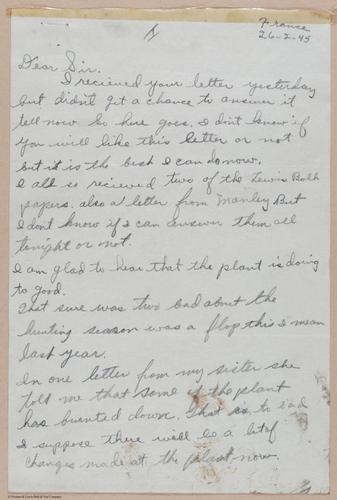 France
26-2-45
Dear Sir.
I recieved your letter yesterday
but didn't get a chance to answer it
tell now. So here goes. I don't know if
you will like this letter or not
but it is the best I can do now.
I all so recieved two of the Lewis Bolt
papers. also a letter from Manley But
I dont know if I can answer them all
tonight or not.
I am glad to hear that the plant is doing
so good.
That sure was two bad about the
hunting season was a flop this I mean
last year.
In one letter from my sister she
told me that some of the plant
has burnted down. that is to bad
I suppose there will be a lot of
changes made at the plant now.